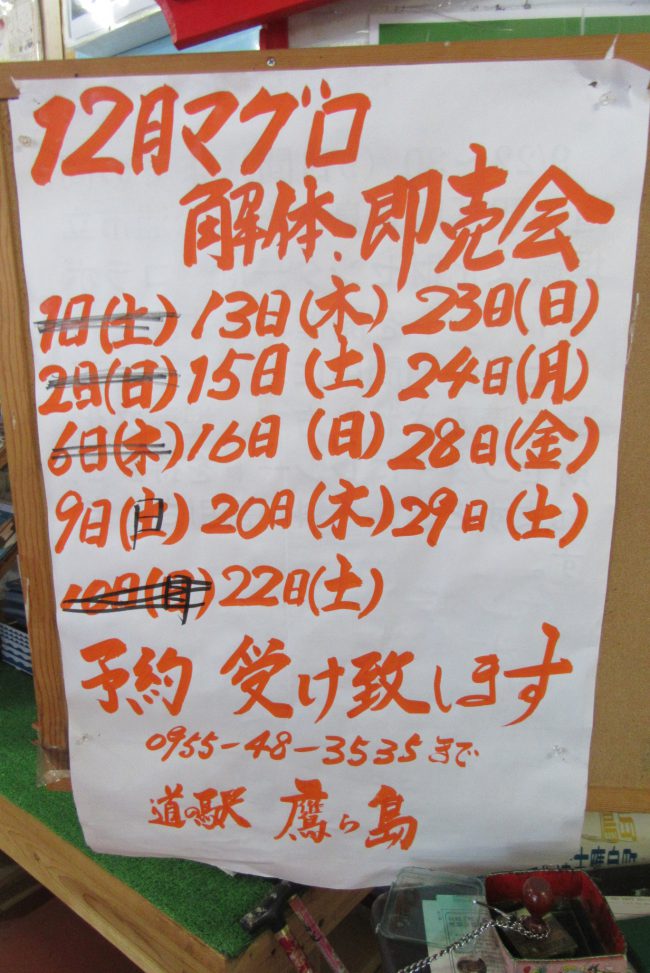 12月マグロ
解体、即売会
1日(土) 13日(木) 23日(日)
2日(日) 15日(土) 24日(月)
6日(木) 16日(日) 28日(金)
9日(日) 20日(木) 29日(土)
10日(日) 22日(土)
予約 受け致します
0955-48-3535まで
道の駅 鷹ら島